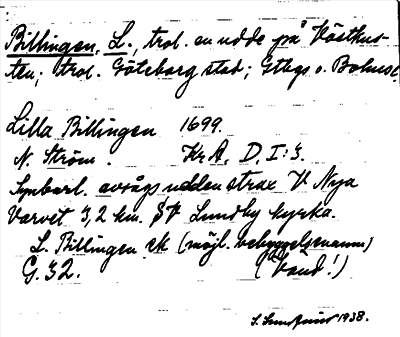 Billingen, L., trol. en udde på Västkus-
ten; trol. Göteborg stad; Gtbgs o. Bohusl.
Lilla Billingen 1699.
N. Ström. KrA, D. I:3.
Synbarl. avsågs udden strax V Nya
Varvet 3,2 km. SV Lundby kyrka.
L. Billingen ek (möjl. bebyggelsenamn)
G. 32. (båud!)
S. 1938.